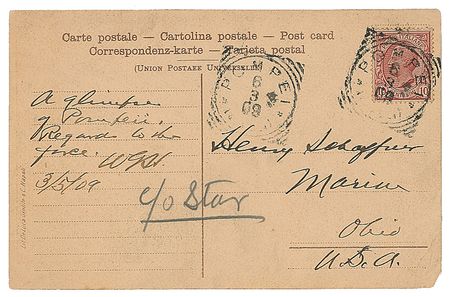 Carte postale — Cartolina postale — Post card
Correspondenz-karte — Tarjeta postal
(UNION POSTALE UNIVERSELLE)
POMPEI
6
3
09
POMPEI
6
3
09
10
A glimpse
of Pompeii,
Regards to the
force. WGH
3/5/09
c/o Star
Henry Schaffner
Marion
Ohio
U.S.A.